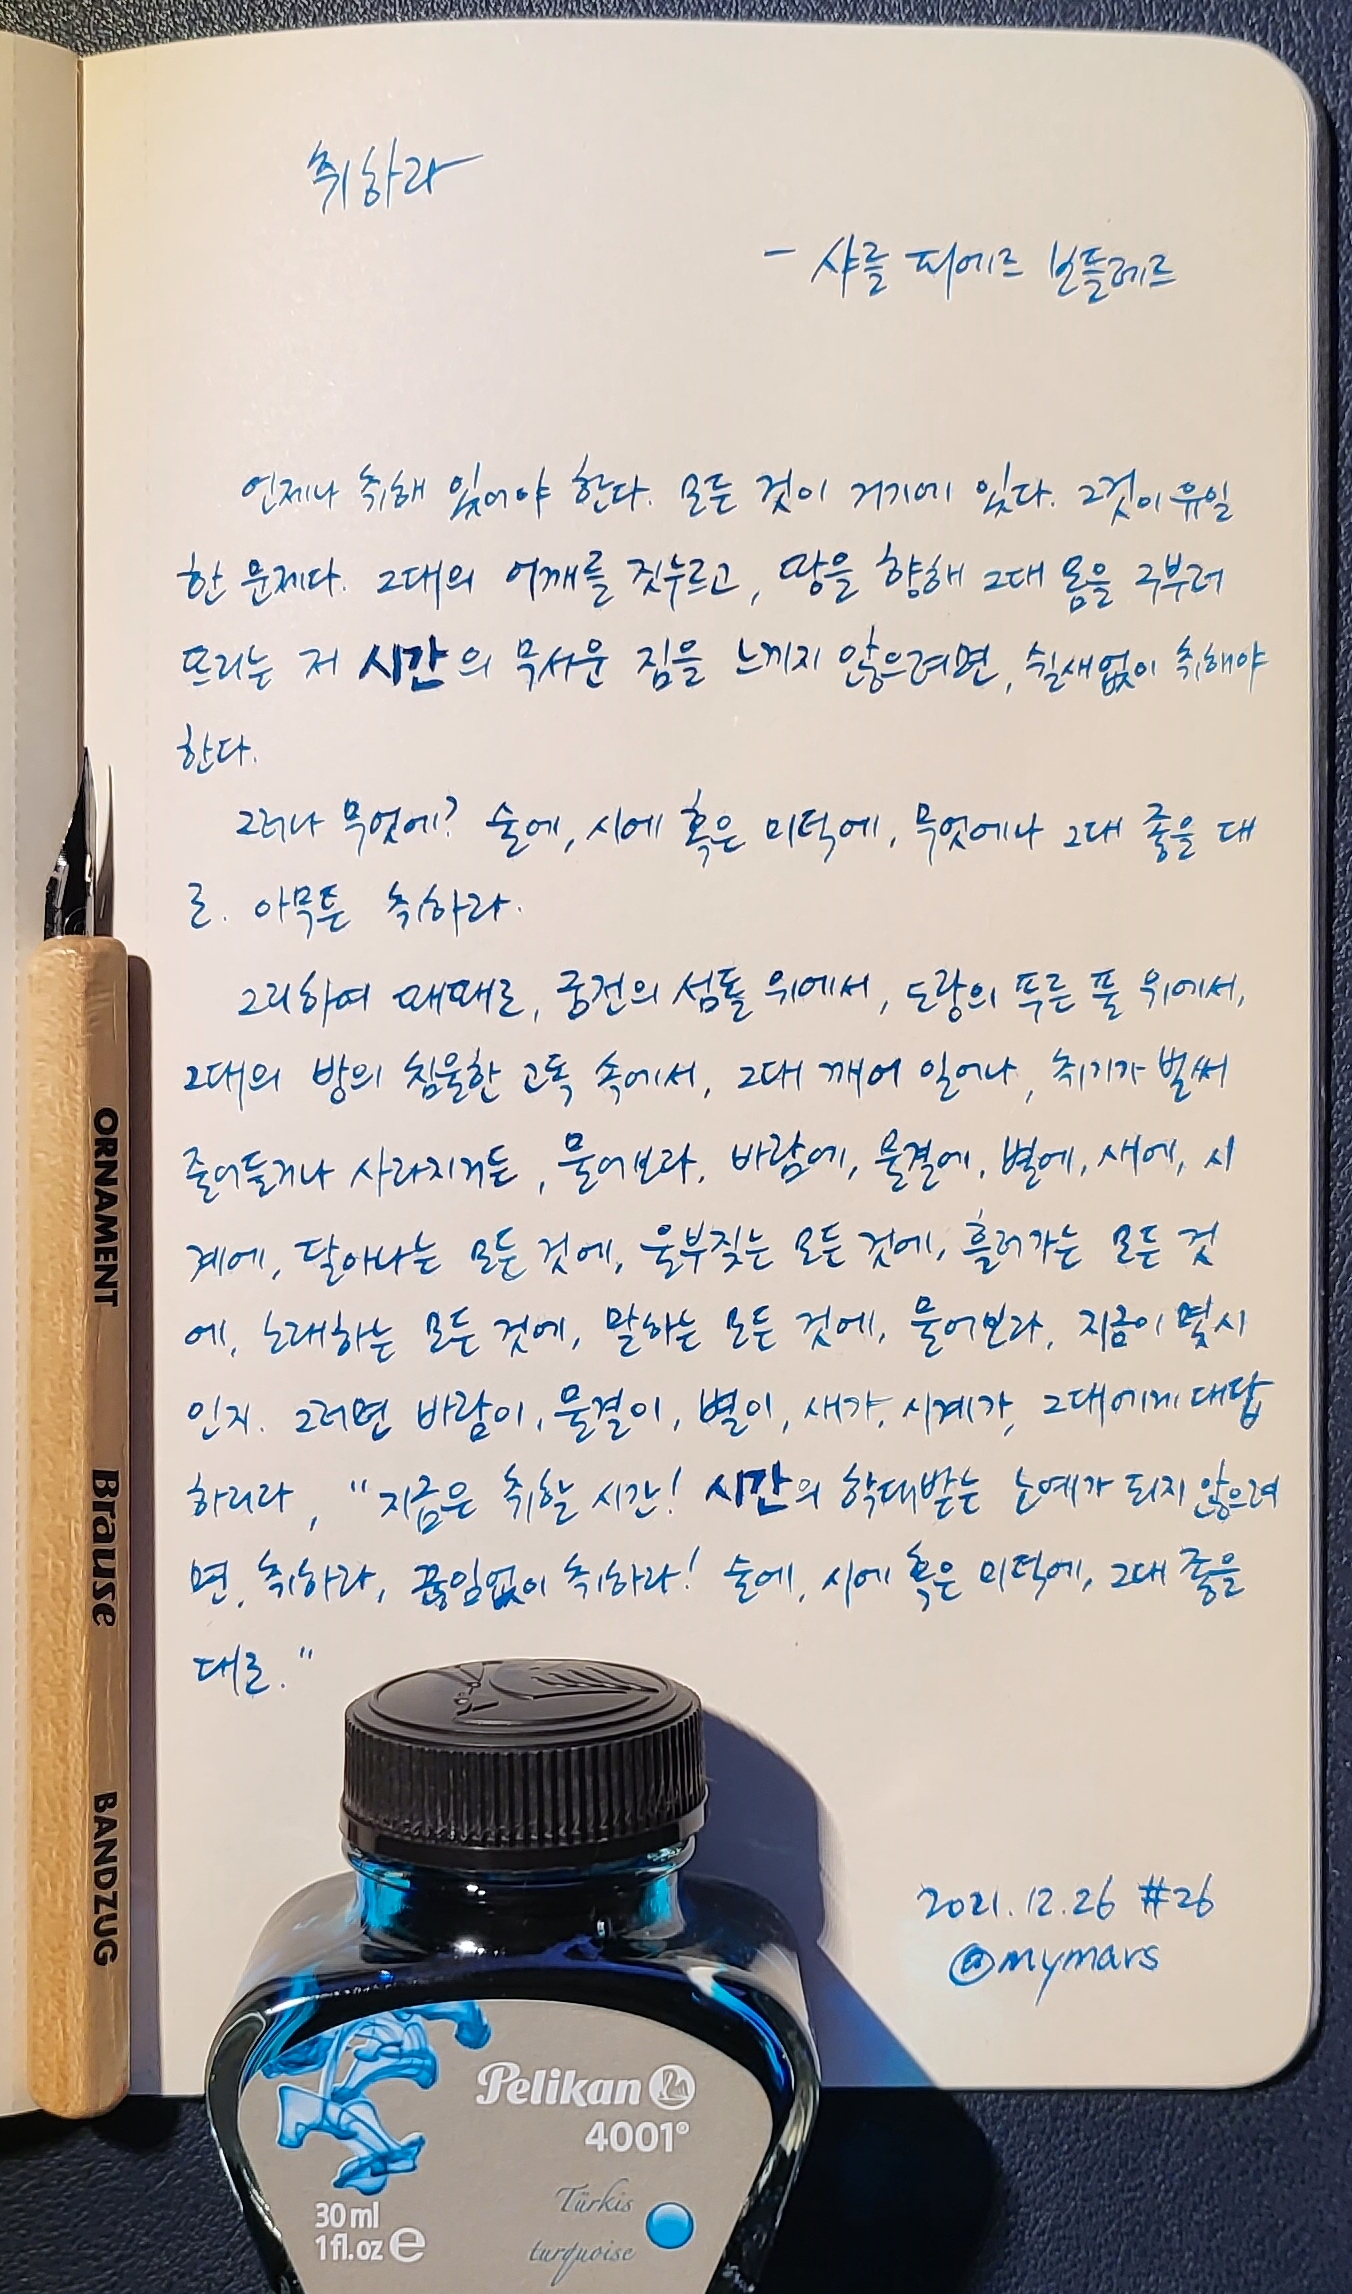 취하라
- 샤를 피에르 보들레르
언제나 취해 있어야 한다. 모든 것이 거기에 있다. 그것이 유일
한 문제다. 그대의 어깨를 짓누르고, 땅을 향해 그대 몸을 구부러
뜨리는 저 시간의 무서운 짐을 느끼지 않으려면, 쉴새없이 취해야
한다.
그러나 무엇에? 술에, 시에 혹은 미덕에, 무엇에나 그대 좋을 대
로. 아무튼 취하라.
그리하여 때때로, 궁전의 섬돌 위에서, 도랑의 푸른 풀 위에서,
그대의 방의 침울한 고독 속에서, 그대 깨어 일어나, 취기가 벌써
줄어들거나 사라지거든, 물어보라, 바람에, 물결에, 별에, 새에, 시
계에, 달아나는 모든 것에, 울부짖는 모든 것에, 흘러가는 모든 것
에, 노래하는 모든 것에, 말하는 모든 것에, 물어보라, 지금이 몇시
인지. 그러면 바람이, 물결이, 별이, 새가, 시계가, 그대에게 대답
하리라, "지금은 취할 시간! 시간의 학대받는 노예가 되지 않으려
면, 취하라, 끊임없이 취하라! 술에, 시에 혹은 미덕에, 그대 좋을
대로."
2021.12.26 #26
@mymars
ORNAMENT Brause BANDZUG
Pelikan
4001®
30 ml
1 fl.oz e
Türkis
turquoise